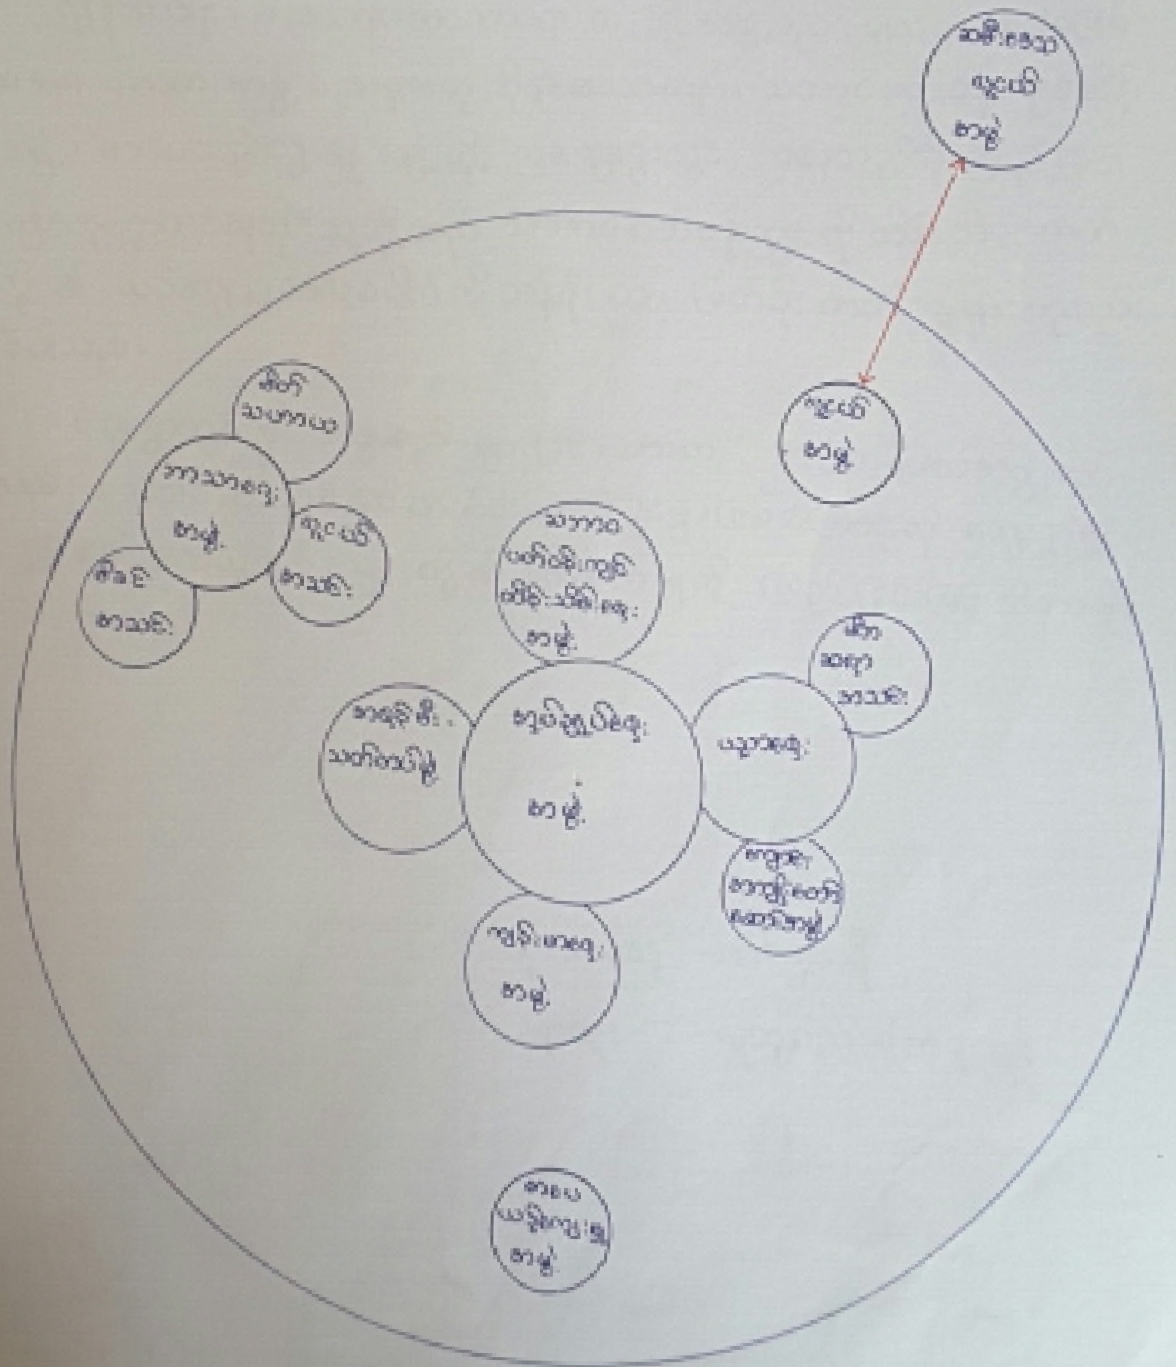 ဆမီးဒေသ
လူငယ်
အဖွဲ့
လူငယ်
အဖွဲ့
မိတ်
သဟာယ
ဘာသာရေး
အဖွဲ့
လူငယ်
အသင်း
မိခင်
အသင်း
သဘာဝ
ပတ်ဝန်းကျင်
ထိန်းသိမ်းရေး
အဖွဲ့
မိဘ
ဆရာ
အသင်း
အရန်မီး
သတ်တပ်ဖွဲ့
အုပ်ချုပ်ရေး
အဖွဲ့
ပညာရေး
ကျောင်း
အကျိုးတော်
ဆောင်အဖွဲ့
ကျန်းမာရေး
အဖွဲ့
စာပေ
ယဉ်ကျေးမှု
အဖွဲ့